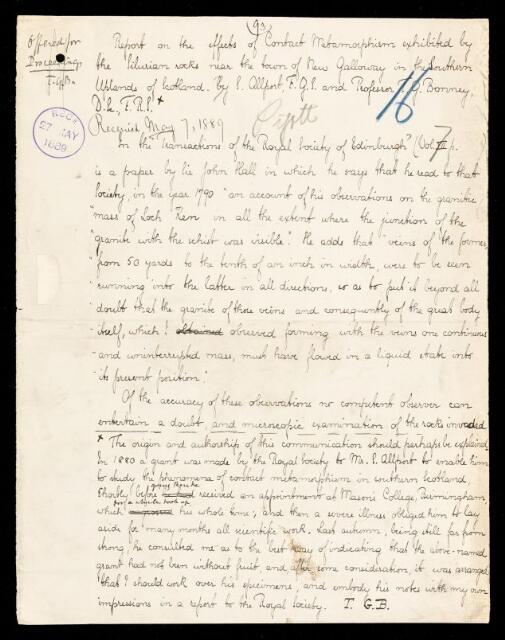 Offered for
Proceedings
T.G.B.
Report on the effects of Contact Metamorphism exhibited by
the Silurian rocks near the town of New Galloway in the Southern
Uplands of Scotland. By S. Allport, F.G.S. and Professor T. G. Bonney,
D.Sc., F.R.S. *
16
Received May 7, 1889
RECD
27 MAY
1889
In the Transactions of the Royal Society of Edinburgh (Vol 7 p.
is a paper by Sir John Hall in which he says that he read to that
Society, in the year 1790 "an account of his observations on the granitic
"mass of Loch Ken in all the extent where the junction of the
"granite with the schist was visible." He adds that "veins of the former
"from 50 yards to the tenth of an inch in width, were to be seen
"running into the latter in all directions, so as to put it beyond all
"doubt that the granite of those veins and consequently of the great body
"itself, which I obtained observed forming with the veins one continuous
"and uninterrupted mass, must have flowed in a liquid state into
"its present position."
Of the accuracy of these observations no competent observer can
entertain a doubt, and microscopic examination of the rocks invaded
* The origin and authorship of this communication should perhaps be explained.
In 1880 a grant was made by the Royal Society to Mr. S. Allport to enable him
to study the phenomena of contact metamorphism in southern Scotland.
Shortly before received an appointment at Mason's College, Birmingham
which his whole time, and then a severe illness obliged him to lay
aside for many months all scientific work. Last autumn, being still far from
strong, he consulted me as to the best way of indicating that the above-named
grant had not been without fruit, and after some consideration, it was arranged
that I should work over his specimens, and embody his notes with my own
impressions in a report to the Royal Society. T. G. B.